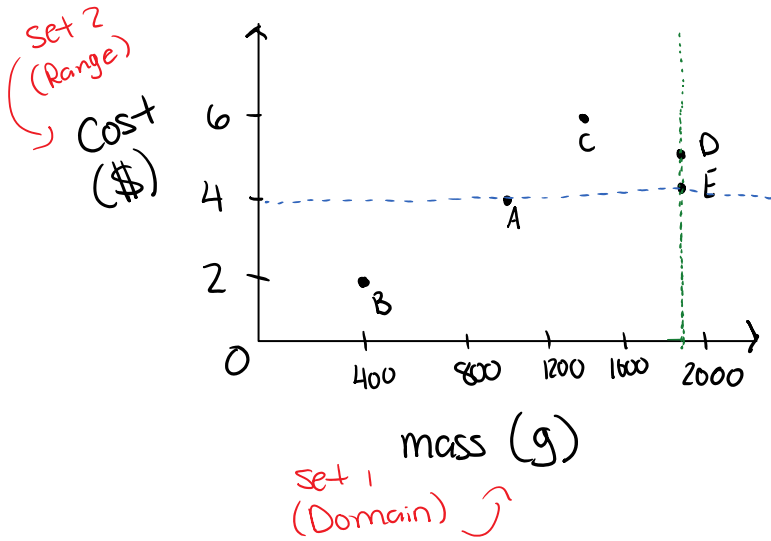 set 2
(Range)
Cost
($)
6
4
2
0
C
D
E
A
B
400
800
1200
1600
2000
mass (g)
set 1
(Domain)